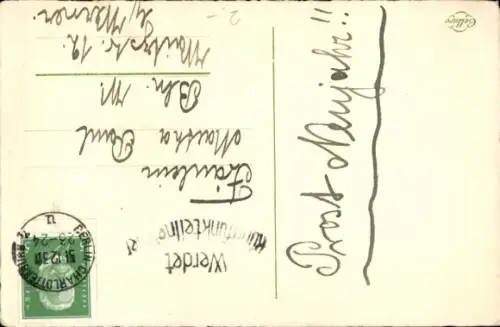 Prost Neujahr!!
Fräulein
Martha Paul
Bln. N.
b/ Werner
2.-
Werdet
Rundfunkteilne
BERLIN-CHARLOTTENBURG 2
31.12.30
23-24
u